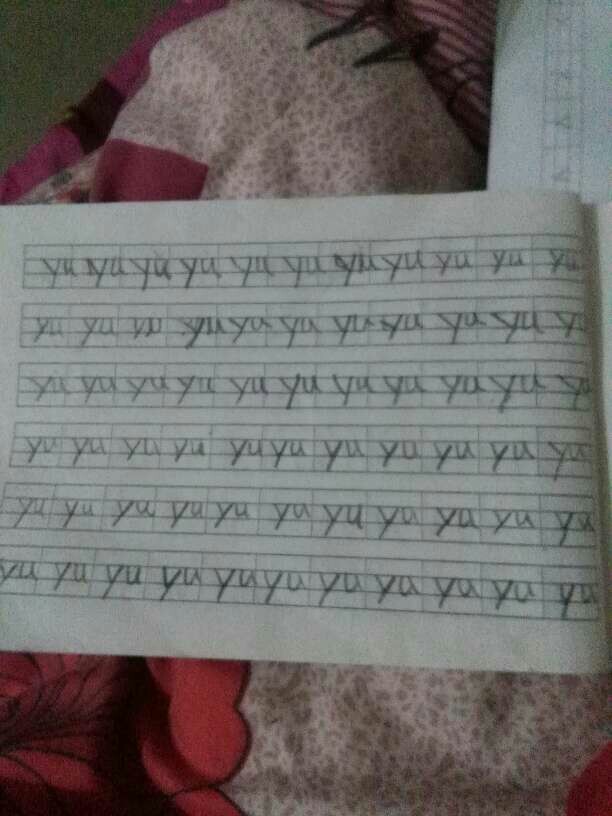 yu yu yu yu yu yu yu yu yu yu yu
yu yu yu yu yu yu yu yu yu yu yu
yu yu yu yu yu yu yu yu yu yu yu
yu yu yu yu yu yu yu yu yu yu yu
yu yu yu yu yu yu yu yu yu yu yu
yu yu yu yu yu yu yu yu yu yu yu